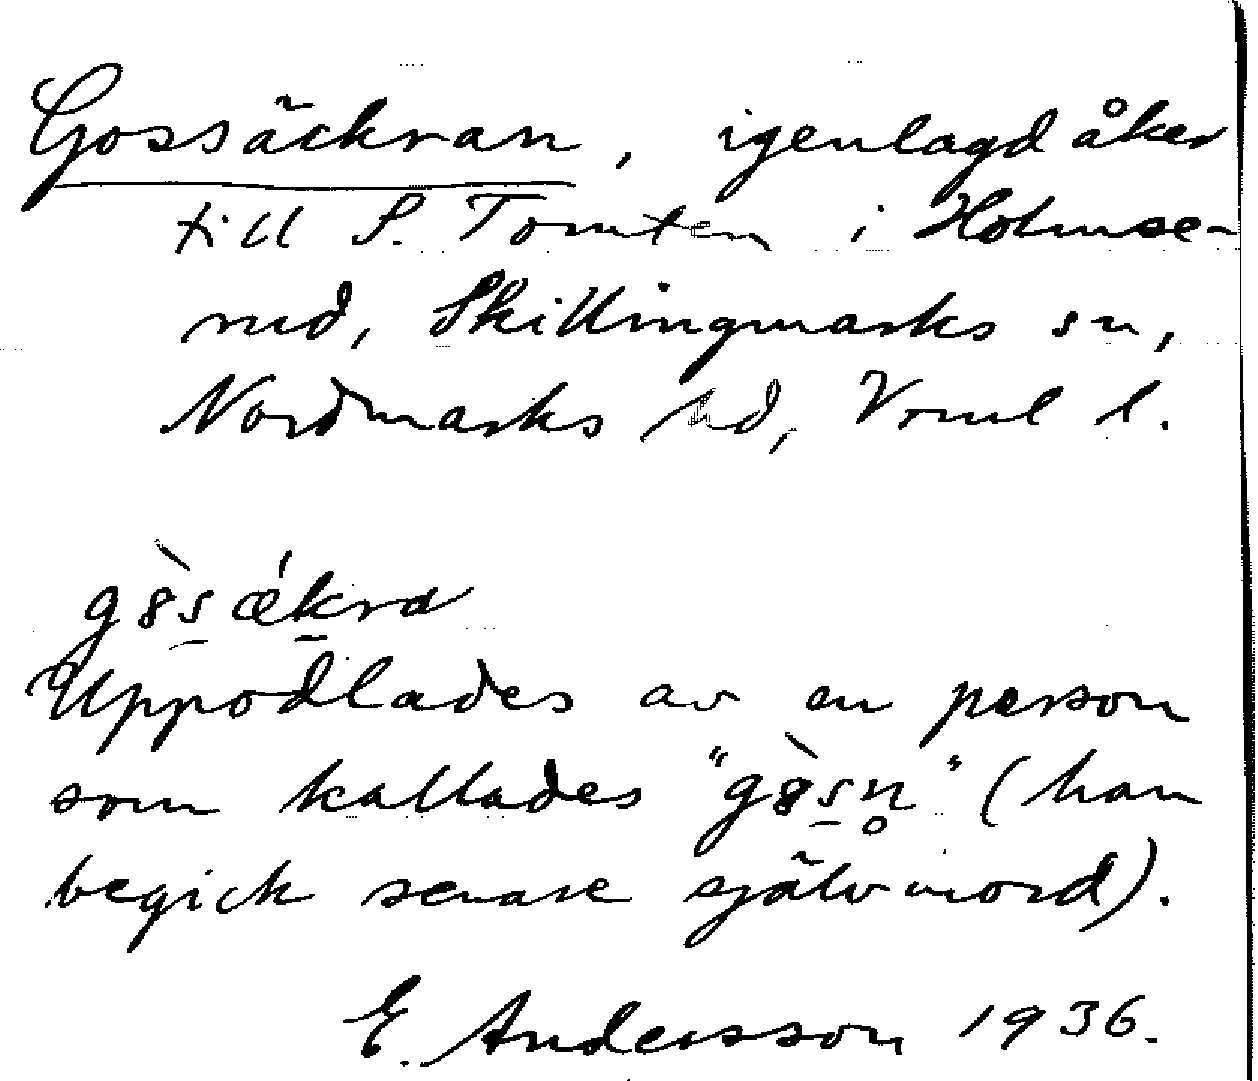 Gossäckran, igenlagd åker
till S. Tomten i Holmse-
rud, Skillingmarks sn,
Nordmarks hd, Vrml l.
g8̀s̲ǽk̲ra
Uppodlades av en person
som kallades "g8̀s̲n̥" (han
begick senare självmord).
E. Andersson 1936.